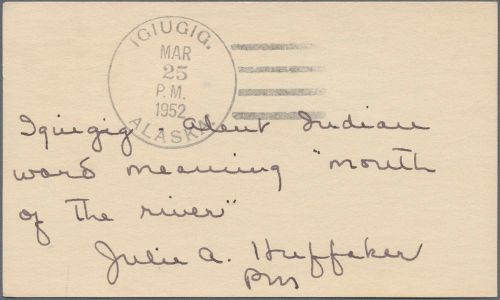 IGIUGIG.
MAR
25
P.M.
1952
ALASKA.
Iguigig - Aleut Indian
word meaning "mouth
of the river"
Julie A. Huffaker
PM